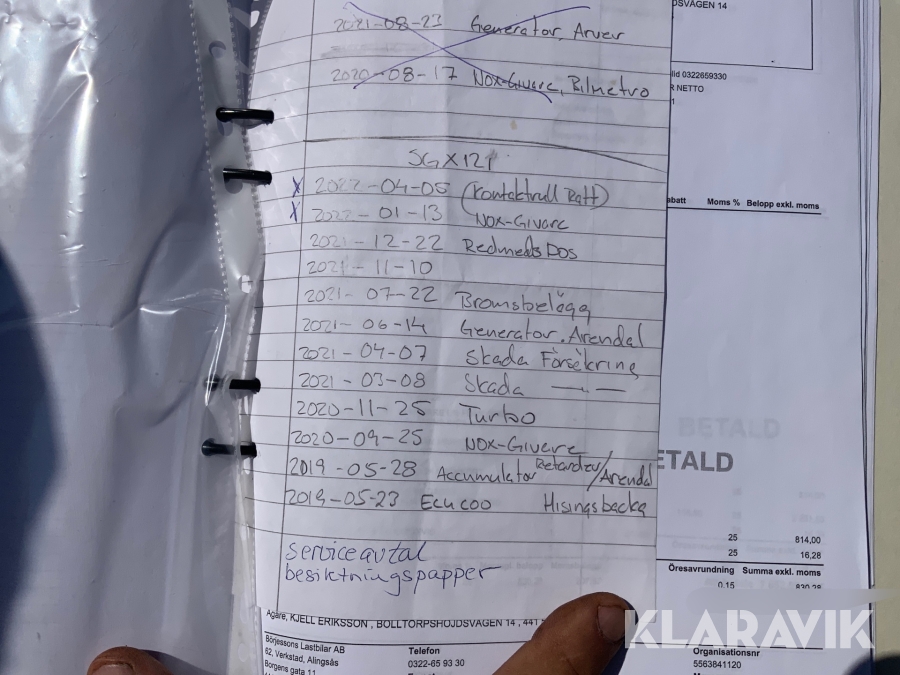 2021-08-23 Generator, Arver
2020-08-17 NOX-Givare, Bilmetro
SGX121
X 2022-04-05 (Kontaktrull Ratt)
X 2022-01-13 NOX-Givare
2021-12-22 Redmeds Dos
2021-11-10
2021-07-22 Bromsbelägg
2021-06-14 Generator. Arendal
2021-04-07 Skada Försäkring
2021-03-08 Skada —〃—
2020-11-25 Turbo
2020-09-25 NOX-Givare
2019-05-28 Accumulator Retarder/Arendal
2019-05-23 Ecu coo Hisingsbacka
serviceavtal
besiktningspapper
Ägare, KJELL ERIKSSON, BOLLTORPSHÖJDSVÄGEN 14, 441
Börjessons Lastbilar AB
62, Verkstad, Alingsås
Borgens gata 11
Telefon
0322-65 93 30
Organisationsnr
5563841120
SVÄGEN 14
0322659330
NETTO
abatt Moms % Belopp exkl. moms
BETALD
ETALD
25 814,00
25 16,28
Öresavrundning Summa exkl. moms
0.15 830,28
KLARAVIK